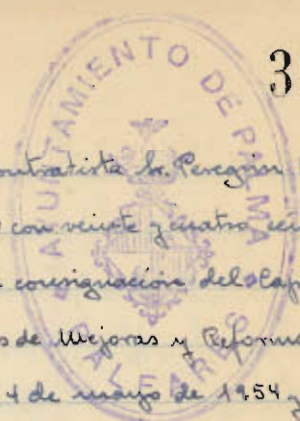 AYUNTAMIENTO DE PALMA
BALEARES
3
contratista Sr. Peregrin
con veinte y cuatro
consignación del Cap
de Mejoras y Reforma
4 de mayo de 1954 y